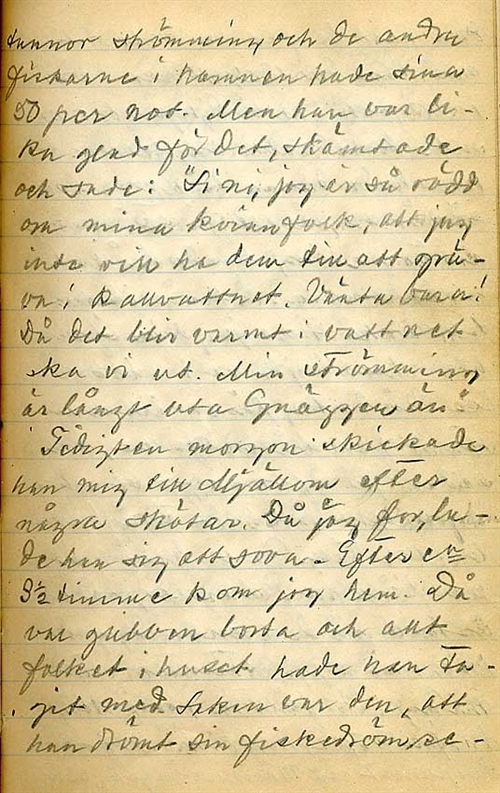 tunnor strömming och de andra
fiskarne i hamnen hade sina
50 per not. Men han var li-
ka glad för det, skämtade
och sade: "Si ni, jag är så rädd
om mina kvinnfolk, att jag
inte vill ha dem till att gräs-
va i kallvattnet. Vänta bara!
Då det blir varmt i vattnet
ska vi ut. Min strömming
är långt uta Gnäggen än."
Tidigt en morgon skickade
han mig till Mjällom efter
några skötar. Då jag for, la-
de han sig att sova. Efter en
3½ timme kom jag hem. Då
var gubben borta och allt
folket i huset hade han ta-
git med. Saken var den, att
han drömt sin fiskedröm, se-